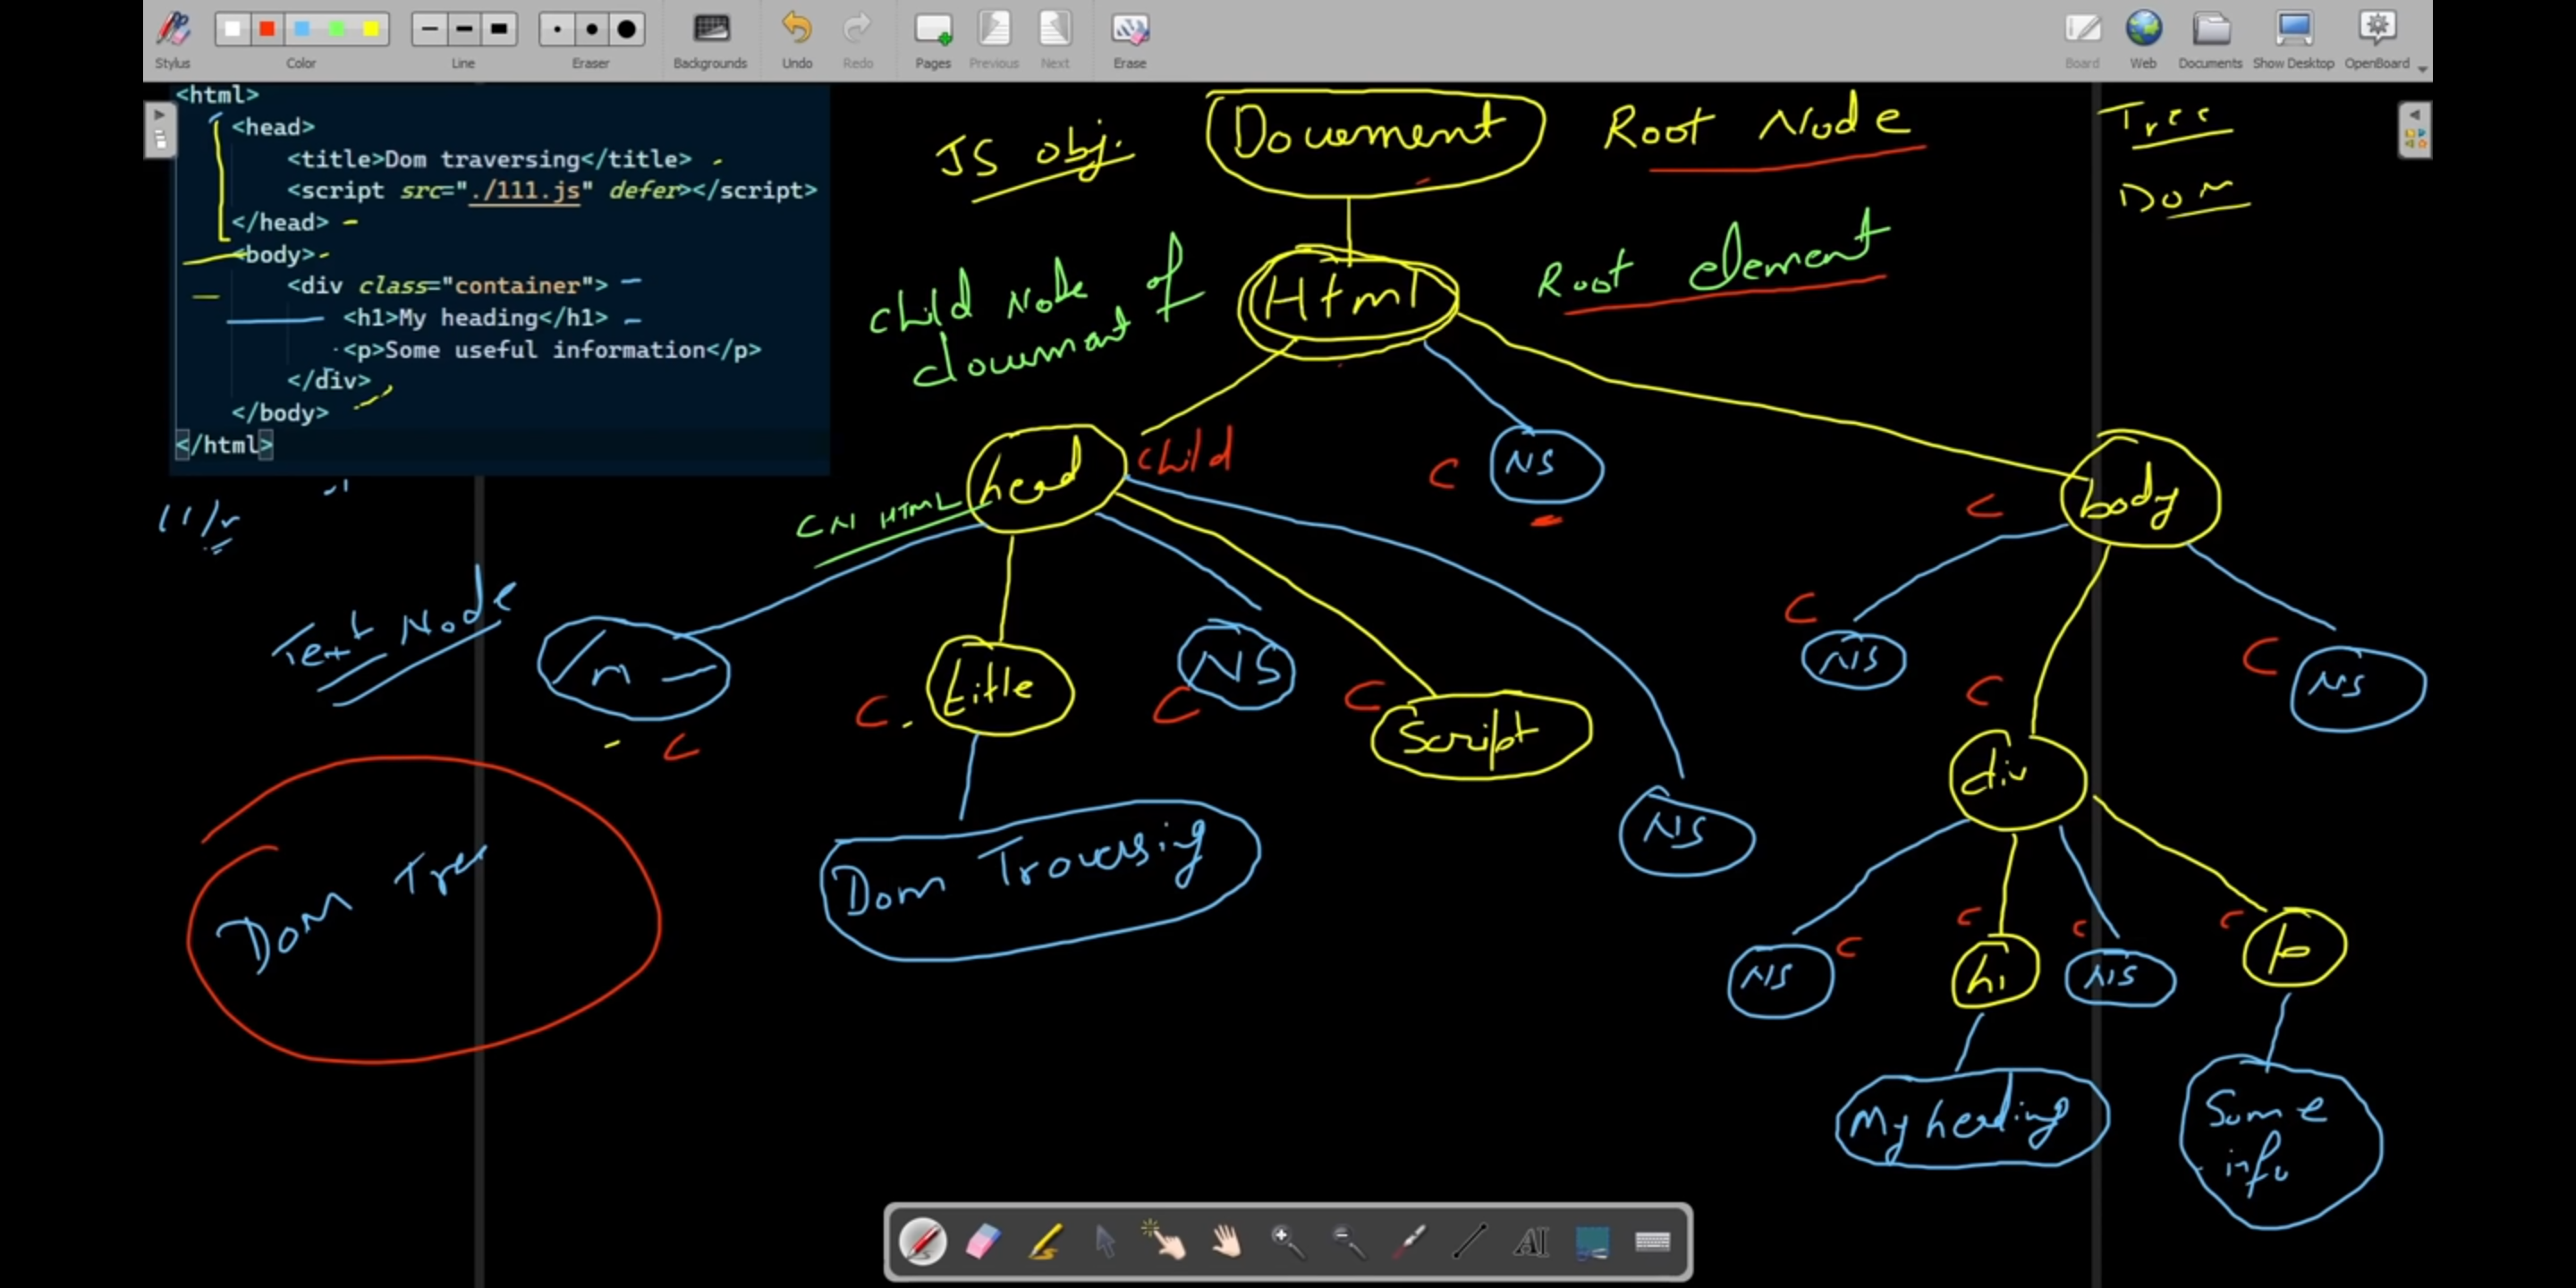 Stylus
Color
Line
Eraser
Backgrounds
Undo
Redo
Pages
Previous
Next
Erase
Board
Web
Documents
Show Desktop
OpenBoard
<html>
<head>
<title>Dom traversing</title>
<script src="./111.js" defer></script>
</head>
<body>
<div class="container">
<h1>My heading</h1>
<p>Some useful information</p>
</div>
</body>
</html>
JS obj.
Document
Root Node
Tree
DOM
Child Node of
document
Html
Root element
head
child
C
NS
C
body
CN HTML
Text Node
/n
C
C
title
C
NS
C
Script
NS
C
NS
C
NS
C
div
Dom Tree
Dom Traversing
NS
C
C
h1
C
NS
C
p
My heading
Some
info
AI